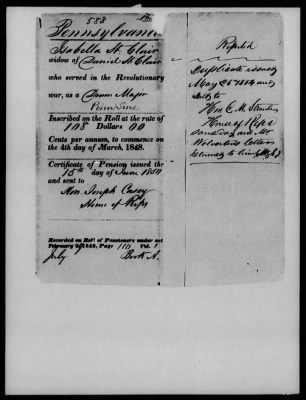 588
Pennsylvania
Isabella St. Clair
widow of Daniel St Clair
who served in the Revolutionary
war, as a Drum Major
Penn Line
Inscribed on the Roll at the rate of
108 Dollars 00
Cents per annum, to commence on
the 4th day of March, 1848.
Certificate of Pension issued the
15th day of June 1850
and sent to
Hon. Joseph Casey
House of Reps
Recorded on Roll of Pensioners under act
February 2, 1848, Page 111 Vol. 1
July Book A.
Duplicate issued
May 26 1854 and
sent to
Hon C. M. Straub
House of Reps
same day and Mr